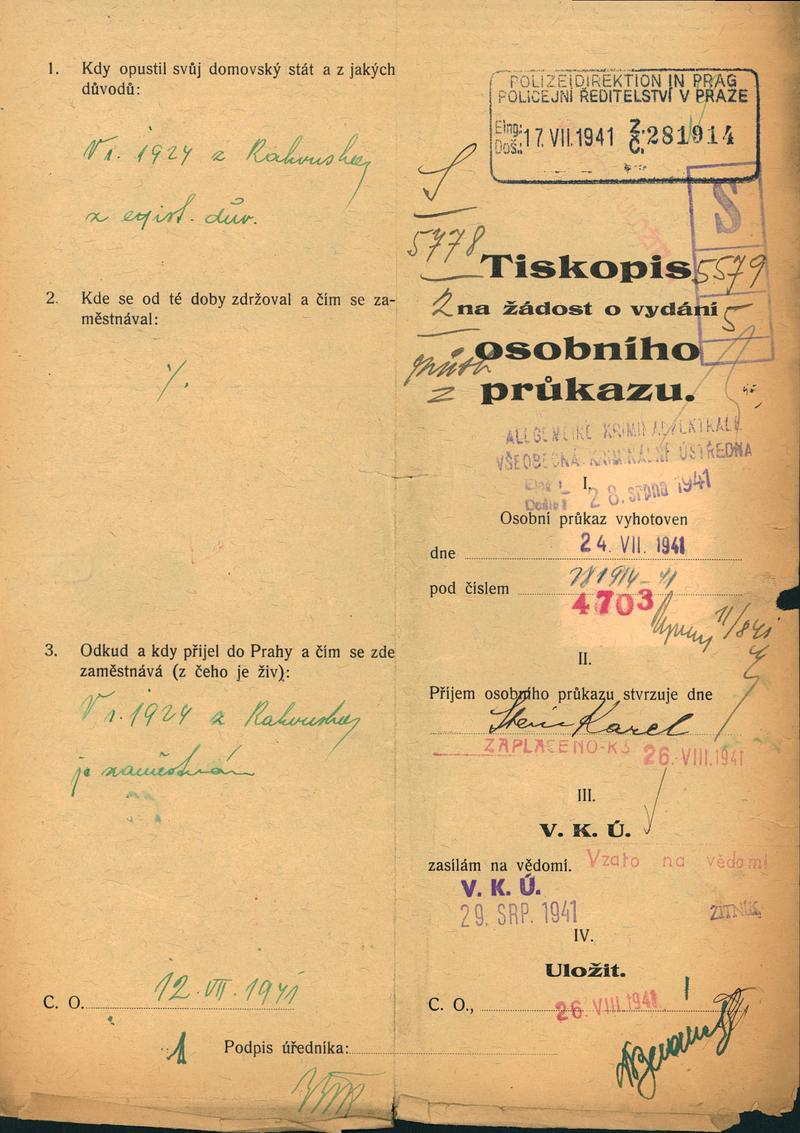 1. Kdy opustil svůj domovský stát a z jakých
důvodů:
V r. 1924 z Rakouska
z exist. dův.
2. Kde se od té doby zdržoval a čím se za-
městnával:
1/.
3. Odkud a kdy přijel do Prahy a čím se zde
zaměstnává (z čeho je živ):
V r. 1924 z Rakouska
je zaměstnán
C. O. 12. VII. 1941
1 Podpis úředníka:
POLIZEIDIREKTION IN PRAG
POLICEJNÍ ŘEDITELSTVÍ V PRAZE
Eing.:
Doš.: 17. VII. 1941 Z. Č. 281914
S
S
5778
2
Tiskopis 5579
na žádost o vydání 5
osobního
průkazu.
ALLGEMEINE KRIMINALZENTRALE
VŠEOBECNÁ KRIMINÁLNÍ ÚSTŘEDNA
28. srpna 1941
I.
Osobní průkaz vyhotoven
dne 24. VII. 1941
pod číslem 281914-41
4703
11/8 41
II.
Příjem osobního průkazu stvrzuje dne
Stein Karel
ZAPLACENO-Kš 26. VIII. 1941
III.
V. K. Ú.
zasílám na vědomí. Vzato na vědomí
V. K. Ú.
29. SRP. 1941
IV.
Uložit.
C. O., 26. VIII. 1941